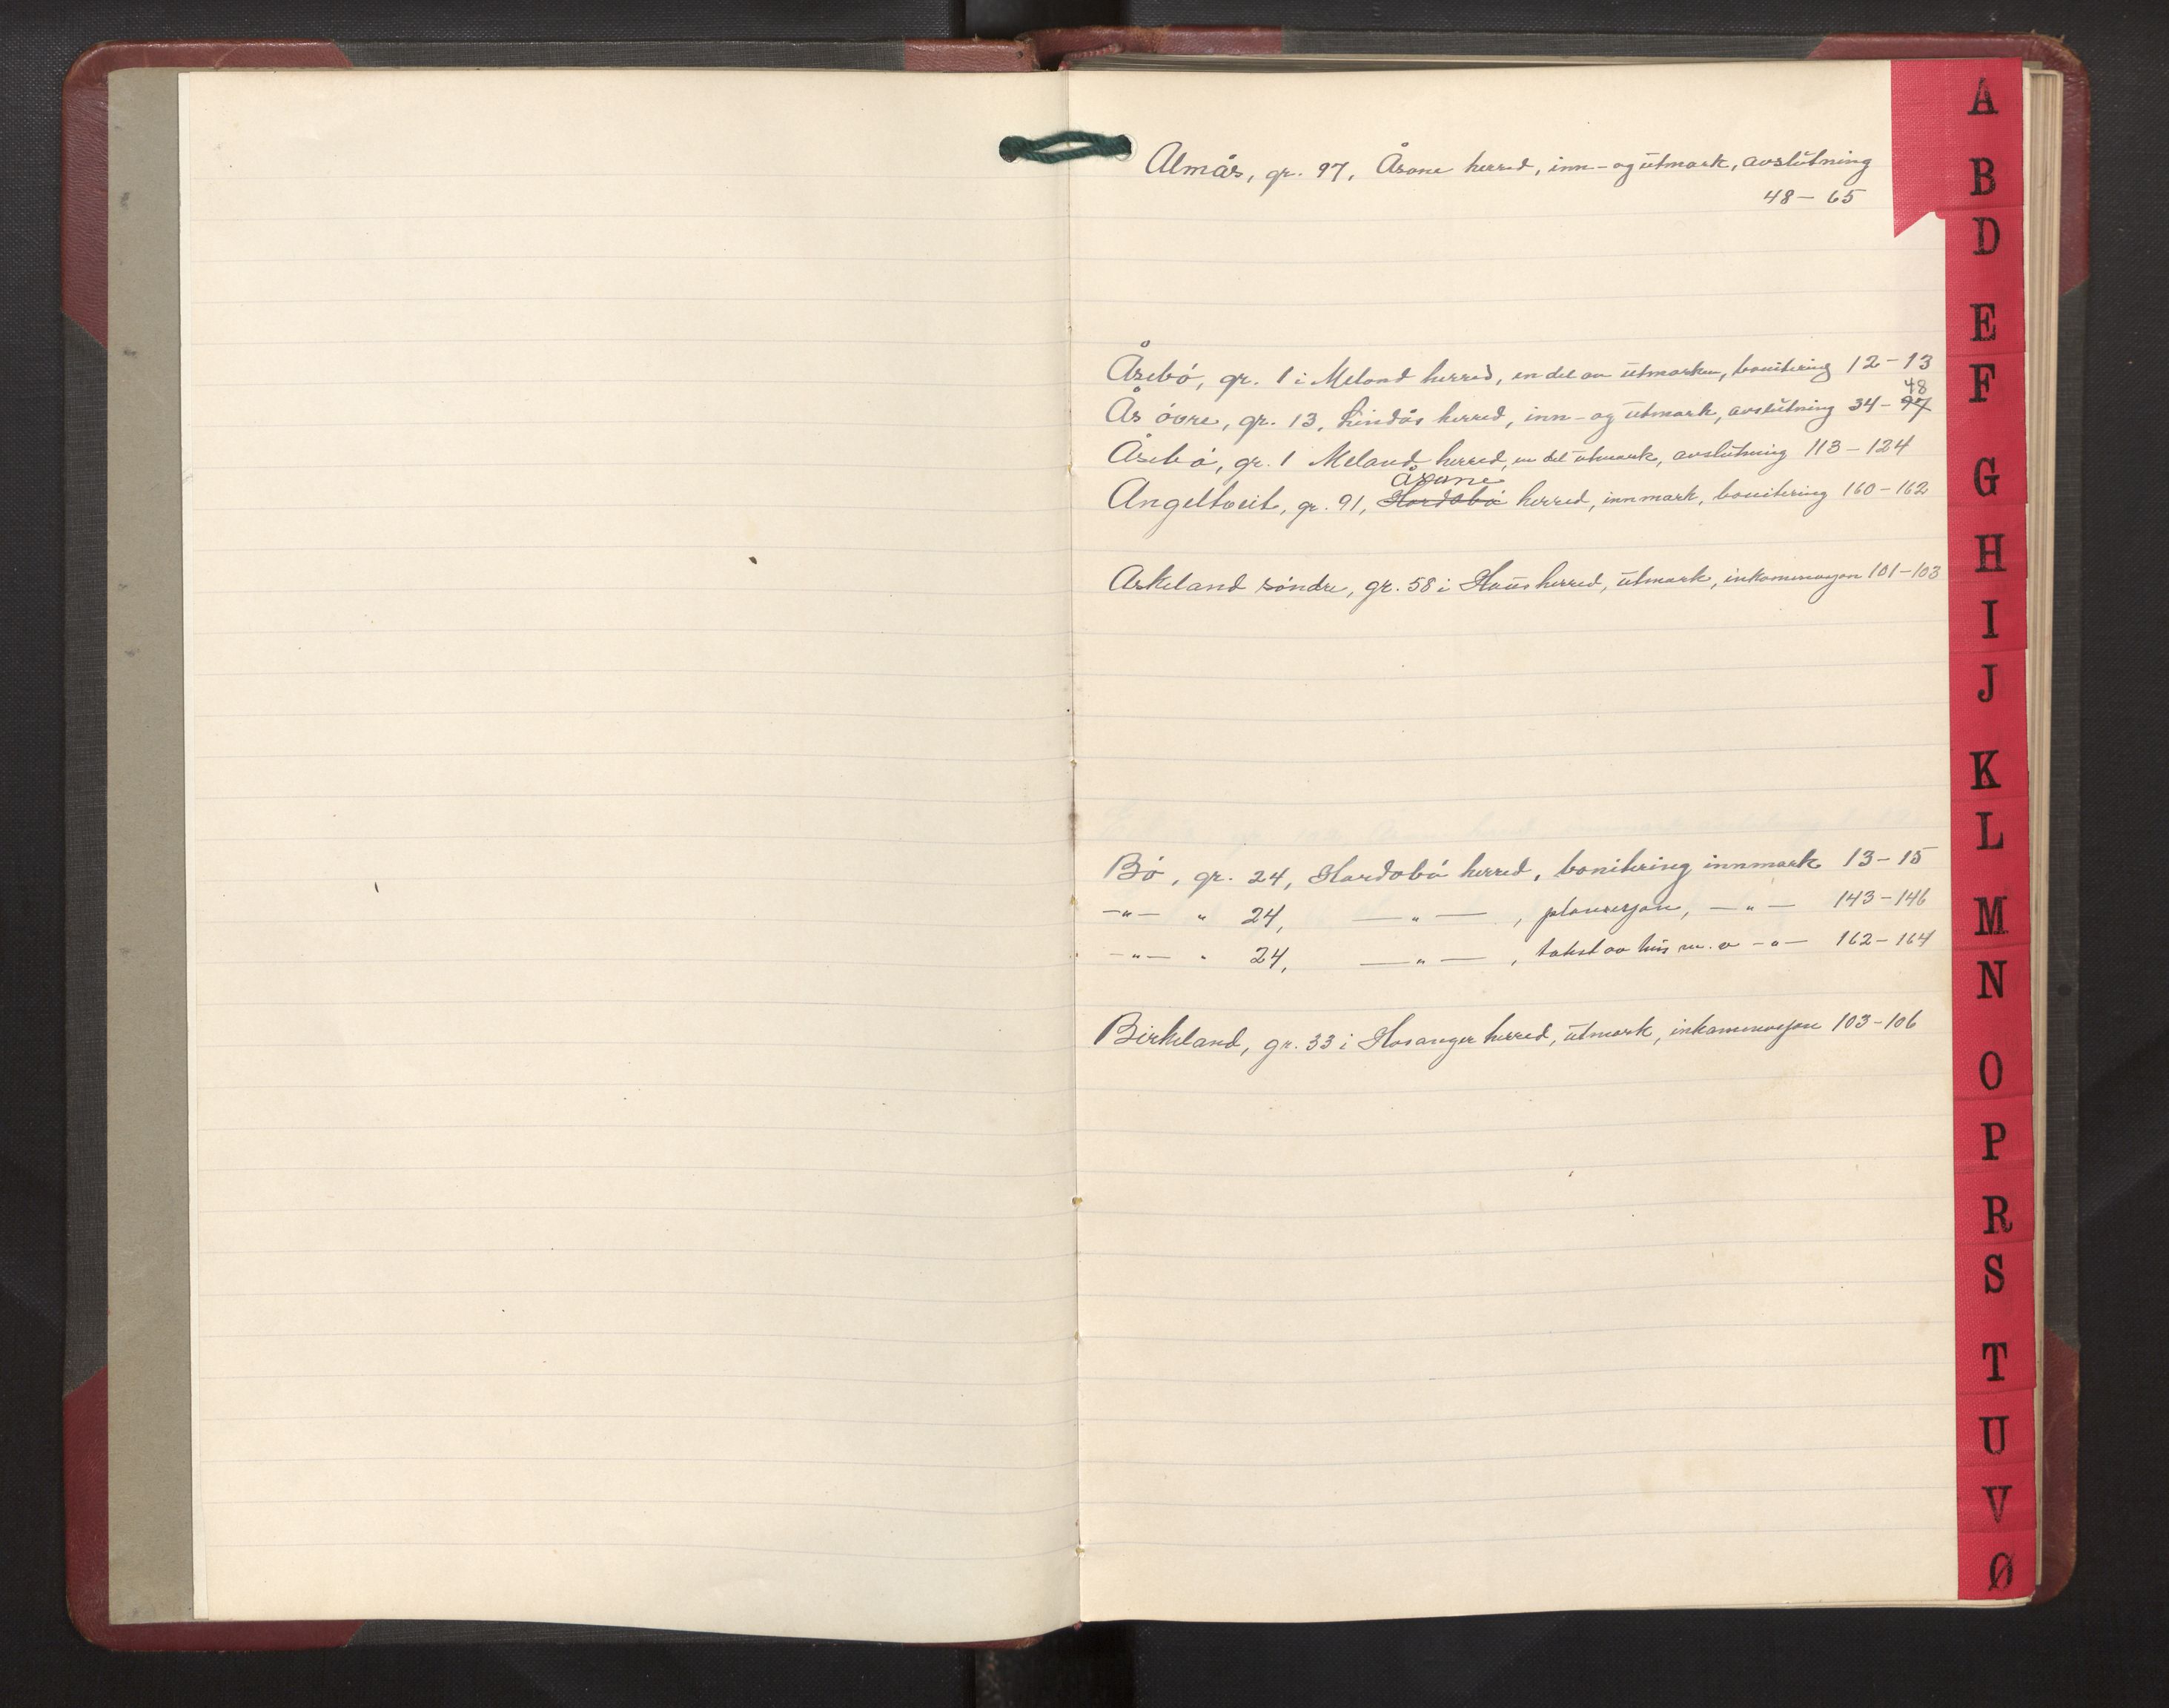 Almås, gr. 97, Åsane herred, inn- og utmark, avslutning
48 - 65
Åsebó, gr. 1 i Meland herred, en del av utmarken, bonitering 12 - 13
48
Ås óvre, gr. 13, Lindås herred, inn- og utmark, avslutning 34 - 97
Åsebó, gr. 1 Meland herred, en del utmark, avslutning 113 - 124
Åsane
Angeltveit, gr. 91, Hordabó herred, innmark, bonitering 160 - 162
Askeland sóndre, gr. 58 i Haus herred, utmark, inkaminasjon 101 - 103
Bó, gr. 24, Hordabó herred, bonitering innmark 13 - 15
-"- " 24, -"-, plansesjon, -"- 143 - 146
-"- " 24, -"-, takst av hus m. v -"- 162 - 164
Birkeland, gr. 33 i Hosanger herred, utmark, inkaminasjon 103 - 106
A
B
D
E
F
G
H
I
J
K
L
M
N
O
P
R
S
T
U
V
Ø